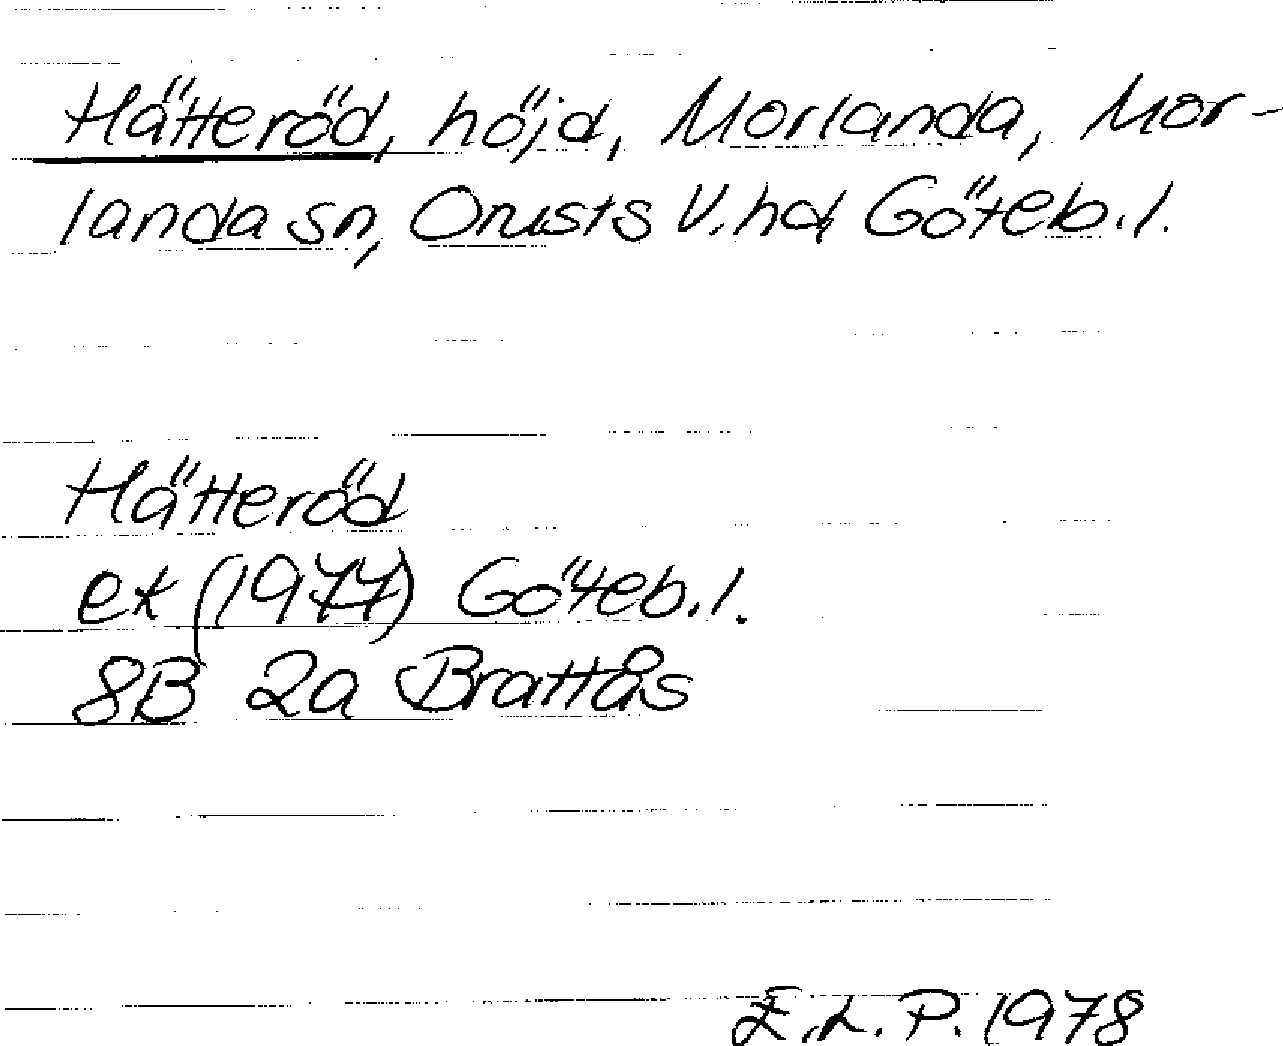 Hätteröd, höjd, Morlanda, Mor-
landa sn, Orusts V. hd, Göteb. l.
Hätteröd
ek (1977) Göteb. l.
8B 2a Brattås
E.L.P. 1978